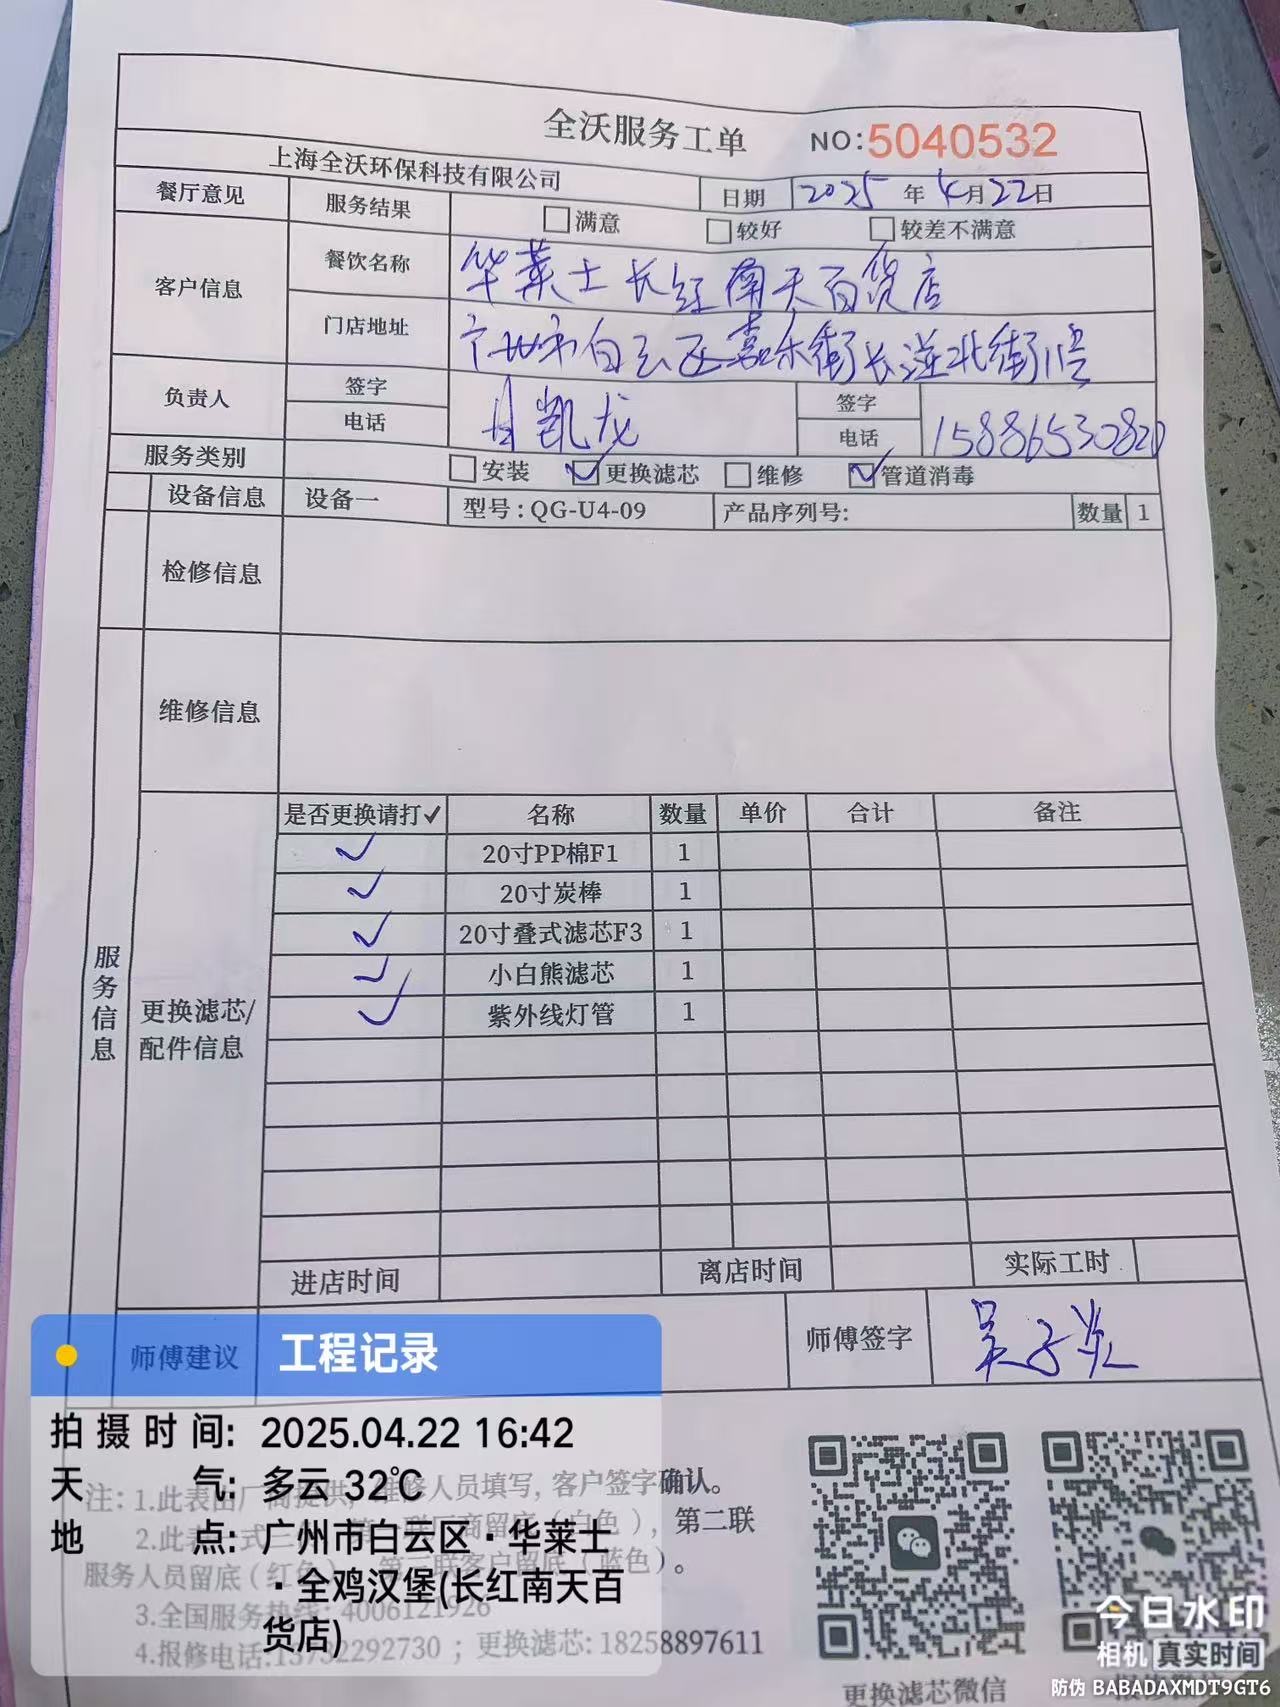 全沃服务工单 NO:5040532
上海全沃环保科技有限公司 日期 2025 年 4月22日
餐厅意见 服务结果 满意 较好 较差不满意
客户信息 餐饮名称 华莱士长红南天百货店
门店地址 广州市白云区嘉禾街长湴北街11号
负责人 签字 凯龙 签字
电话 电话 15886530820
服务类别 安装 ✓更换滤芯 维修 ✓管道消毒
设备信息 设备一 型号:QG-U4-09 产品序列号: 数量 1
检修信息
维修信息
服务信息
更换滤芯/
配件信息
是否更换请打✓ 名称 数量 单价 合计 备注
✓ 20寸PP棉F1 1
✓ 20寸炭棒 1
✓ 20寸叠式滤芯F3 1
✓ 小白熊滤芯 1
✓ 紫外线灯管 1
进店时间 离店时间 实际工时
师傅建议 师傅签字 吴子炎
工程记录
拍摄时间: 2025.04.22 16:42
天气: 多云 32℃
地点: 广州市白云区·华莱士
·全鸡汉堡(长红南天百
货店)
注: 1.此表由厂商提供, 维修人员填写, 客户签字确认。
2.此表一式三 第一联厂商留底(白色), 第二联
服务人员留底(红色) 第三联客户留底(蓝色)。
3.全国服务热线: 4006121926
4.报修电话:13732292730 ; 更换滤芯: 18258897611
更换滤芯微信
今日水印
相机 真实时间
防伪 BABADAXMDT9GT6